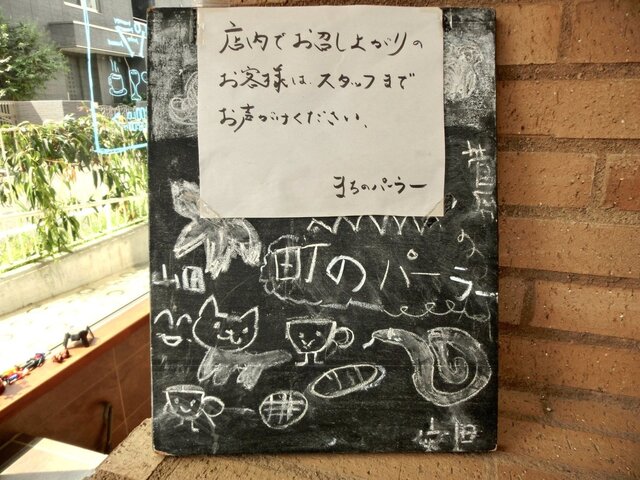 店内でお召し上がりの
お客様は、スタッフまで
お声がけください、
まちのパーラー
町のパーラー
山田